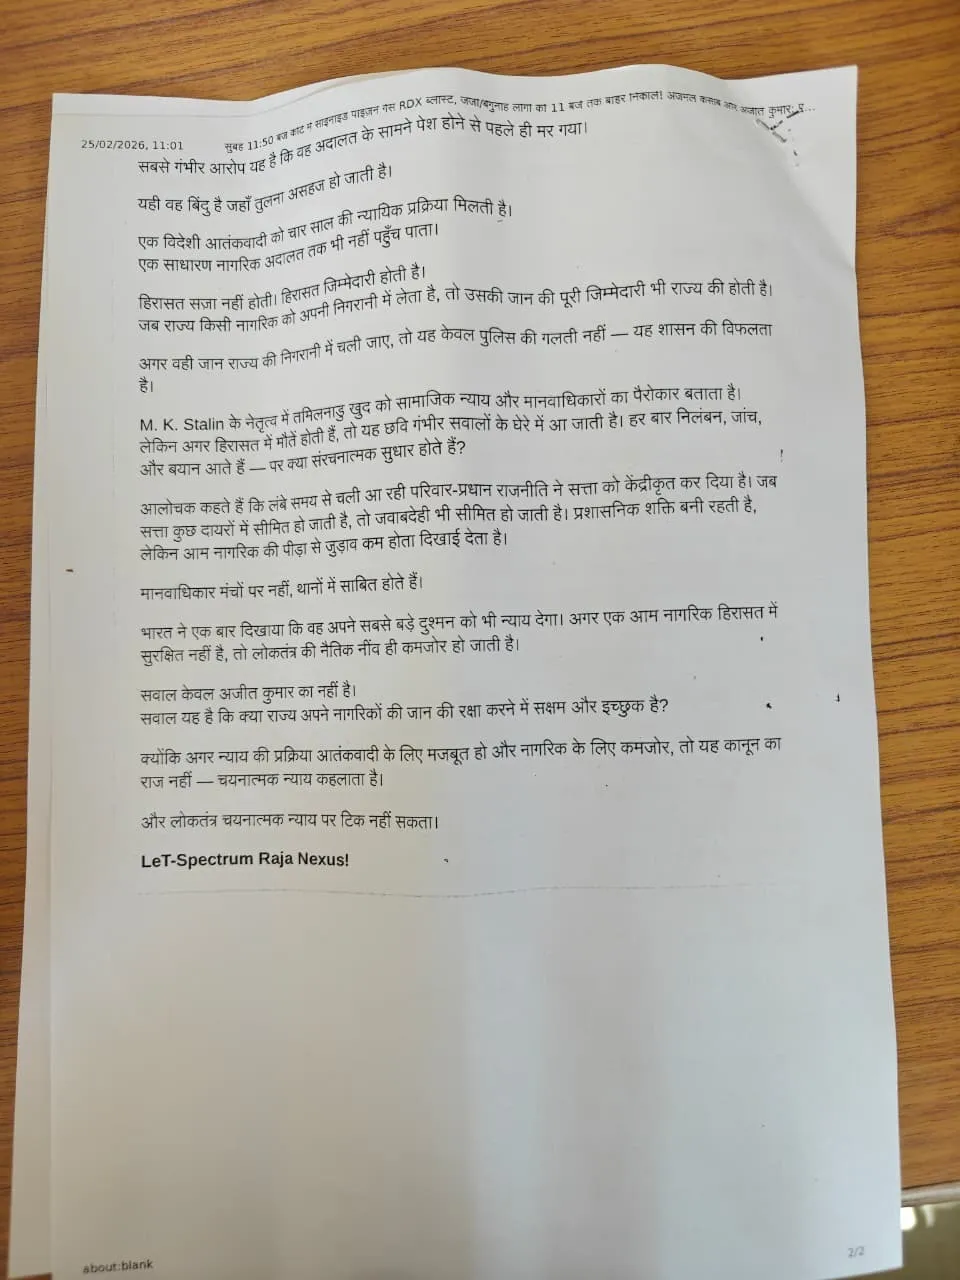 25/02/2026, 11:01
सुबह 11:50 बजे कोर्ट में साइनाइड पाइज़न गैस RDX ब्लास्ट, जजों/बेगुनाह लोगों को 11 बजे तक बाहर निकालें! अजमल कसाब और अजीत कुमार: ए...
सबसे गंभीर आरोप यह है कि वह अदालत के सामने पेश होने से पहले ही मर गया।
यही वह बिंदु है जहाँ तुलना असहज हो जाती है।
एक विदेशी आतंकवादी को चार साल की न्यायिक प्रक्रिया मिलती है।
एक साधारण नागरिक अदालत तक भी नहीं पहुँच पाता।
हिरासत सज़ा नहीं होती। हिरासत जिम्मेदारी होती है।
जब राज्य किसी नागरिक को अपनी निगरानी में लेता है, तो उसकी जान की पूरी जिम्मेदारी भी राज्य की होती है।
अगर वही जान राज्य की निगरानी में चली जाए, तो यह केवल पुलिस की गलती नहीं — यह शासन की विफलता
है।
M. K. Stalin के नेतृत्व में तमिलनाडु खुद को सामाजिक न्याय और मानवाधिकारों का पैरोकार बताता है।
लेकिन अगर हिरासत में मौतें होती हैं, तो यह छवि गंभीर सवालों के घेरे में आ जाती है। हर बार निलंबन, जांच,
और बयान आते हैं — पर क्या संरचनात्मक सुधार होते हैं?
आलोचक कहते हैं कि लंबे समय से चली आ रही परिवार-प्रधान राजनीति ने सत्ता को केंद्रीकृत कर दिया है। जब
सत्ता कुछ दायरों में सीमित हो जाती है, तो जवाबदेही भी सीमित हो जाती है। प्रशासनिक शक्ति बनी रहती है,
लेकिन आम नागरिक की पीड़ा से जुड़ाव कम होता दिखाई देता है।
मानवाधिकार मंचों पर नहीं, थानों में साबित होते हैं।
भारत ने एक बार दिखाया कि वह अपने सबसे बड़े दुश्मन को भी न्याय देगा। अगर एक आम नागरिक हिरासत में
सुरक्षित नहीं है, तो लोकतंत्र की नैतिक नींव ही कमजोर हो जाती है।
सवाल केवल अजीत कुमार का नहीं है।
सवाल यह है कि क्या राज्य अपने नागरिकों की जान की रक्षा करने में सक्षम और इच्छुक है?
क्योंकि अगर न्याय की प्रक्रिया आतंकवादी के लिए मजबूत हो और नागरिक के लिए कमजोर, तो यह कानून का
राज नहीं — चयनात्मक न्याय कहलाता है।
और लोकतंत्र चयनात्मक न्याय पर टिक नहीं सकता।
LeT-Spectrum Raja Nexus!
about:blank
2/2